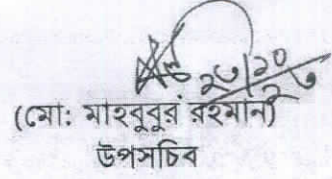 (মো: মাহবুবুর রহমান)
উপসচিব